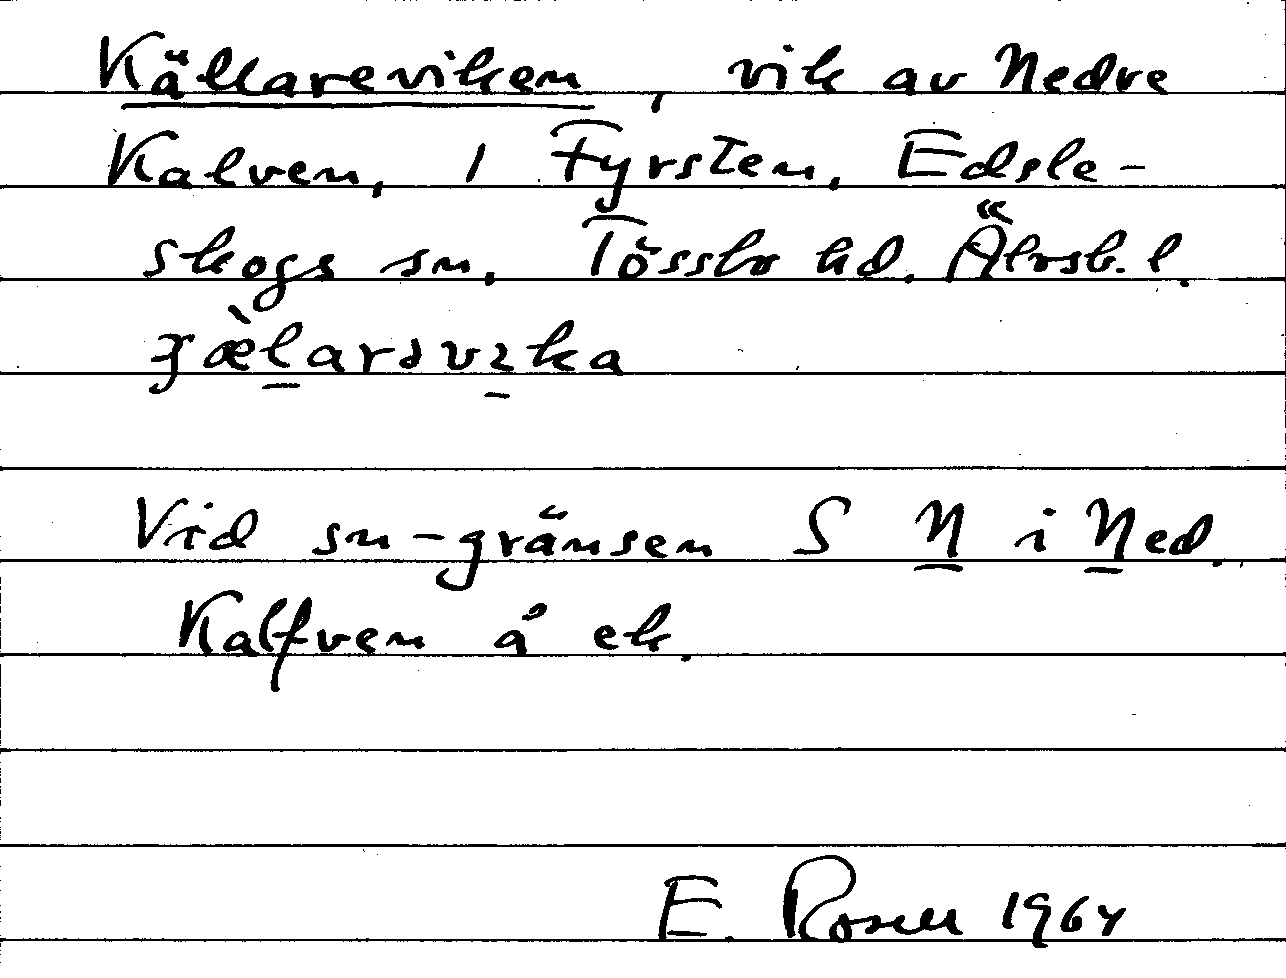 Källareviken, vik av Nedre
Kalven, 1 Fyrsten, Edsle-
skogs sn, Tössbo hd. Älvsb. l.
Vid sn-gränsen S N i Ned.
Kalfven å ek.
E. Rosell 1964